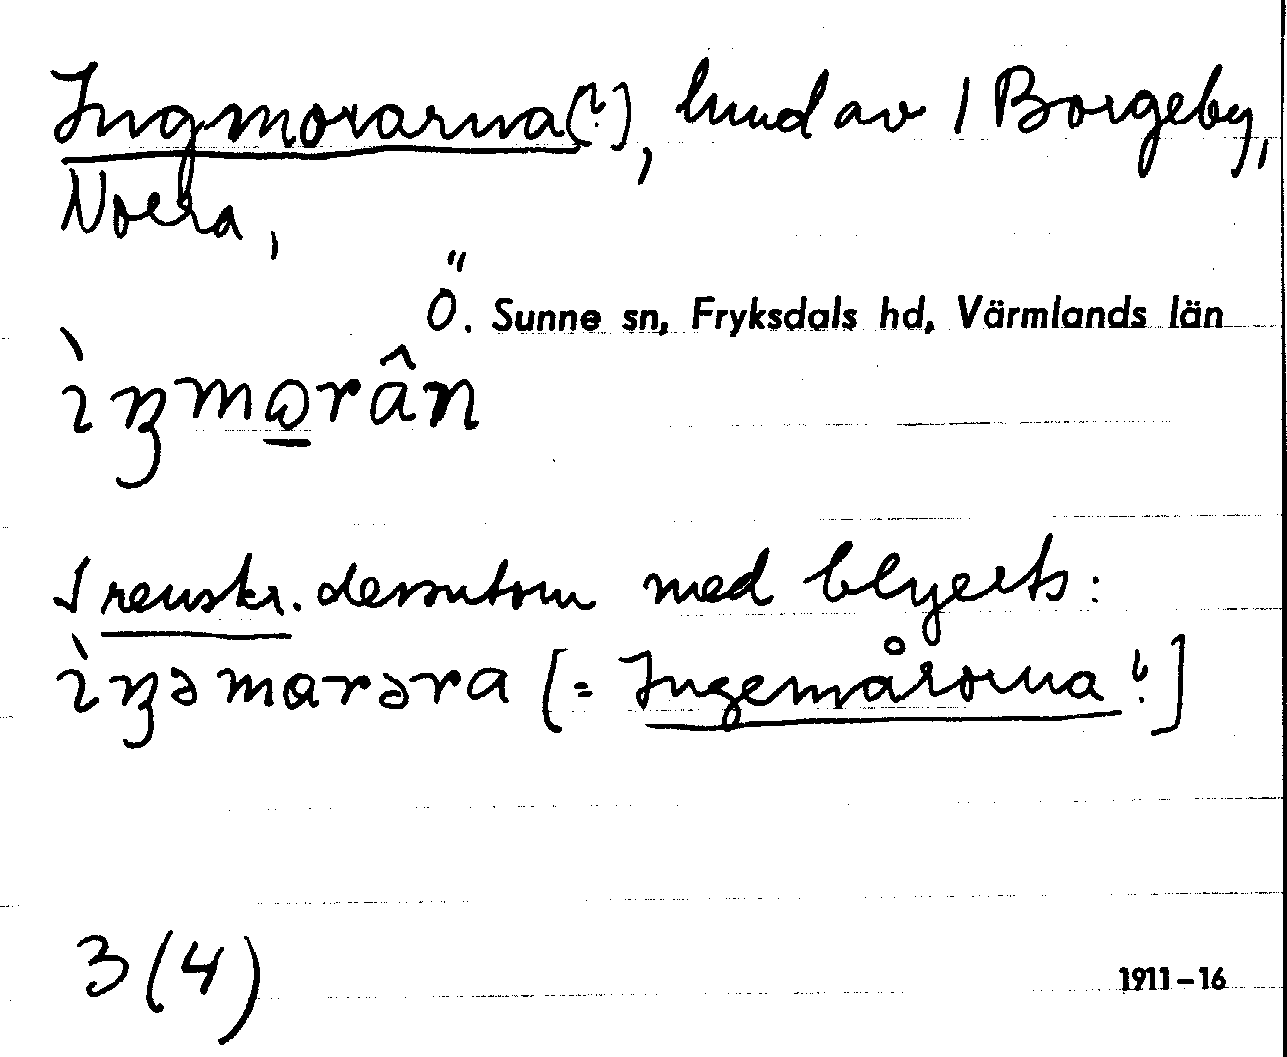 Ingmorarna(?), lund av / Borgeby,
Noera,
Ö. Sunne sn, Fryksdals hd, Värmlands län
ìŋmo̲rân
I renskr. dessutom med blyerts:
ìŋəmɑrəra [= Ingemårorna?]
3(4)
1911–16